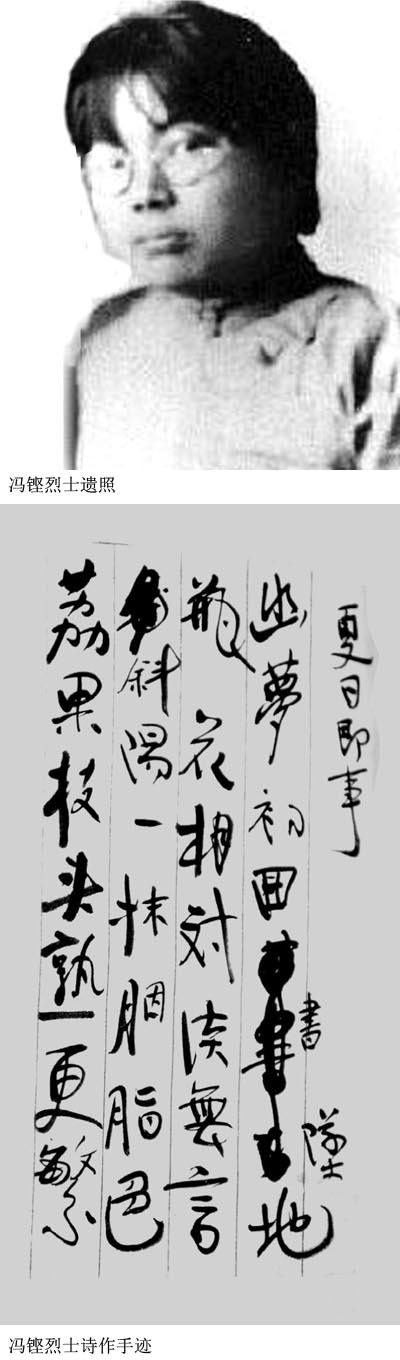 冯铿烈士遗照
夏日即事
幽夢初回書墜地
瓶花相対淡無言
斜陽一抹胭脂色
荔果枝头熟更繁
冯铿烈士诗作手迹